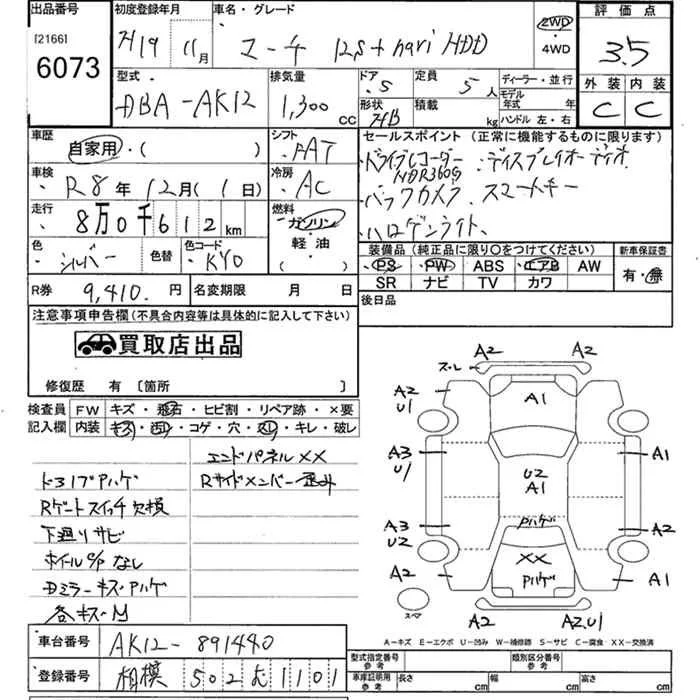 出品番号 初度登録年月 車名・グレード 評価点
[2166]
6073
H19 11月 マーチ 12S+navi HDD 2WD・4WD 3.5
型式 排気量 ドア 定員 ディーラー・並行 外装 内装
DBA-AK12 1,300cc 5 5人 モデル年式 年 C C
形状 積載 ハンドル 左・右
HB kg
車歴 シフト セールスポイント(正常に機能するものに限ります)
自家用・( ) FAT ・ドライブレコーダー・ディスプレイオーディオ
車検 冷房
R8年12月(1日) AC ・バックカメラ、スマートキー
走行 燃料
8万0千612km ガソリン ・ハロゲンライト、
色 色替 色コード 軽油
シルバー KY0 ( )
装備品(純正品に限り○をつけてください) 新車保証書
PS PW ABS エアB AW 有・無
SR ナビ TV カワ
R券 9,410.円 名変期限 月 日 後日品
注意事項申告欄(不具合内容等は具体的に記入して下さい)
買取店出品
修復歴 有 [箇所 ]
検査員記入欄
FW キズ・飛石・ヒビ割・リペア跡・×要
内装 キズ・凹・コゲ・穴・スレ・キレ・破レ
エンドパネル××
ドヨゴレハゲ Rサイドメンバー歪み
Rゲートスイッチ欠損
下廻りサビ
ホイールC/Pなし
Dミラーキズ・ハゲ
各キズ・凹
A2 A2
ス・レ
A2 U1 A1
A3 U1 A1
U2 A1
A3 U2 ハゲ A2
A2 ×× A1
ハゲ
スペア
A2 A2.U1
A-キズ E-エクボ U-凹み W-補修跡 S-サビ C-腐食 ××-交換済
車台番号 AK12-891440
登録番号 相模 502 む 1101
型式指定番号 類別区分番号
車庫証明用参考 長さ cm 幅 cm 高さ cm